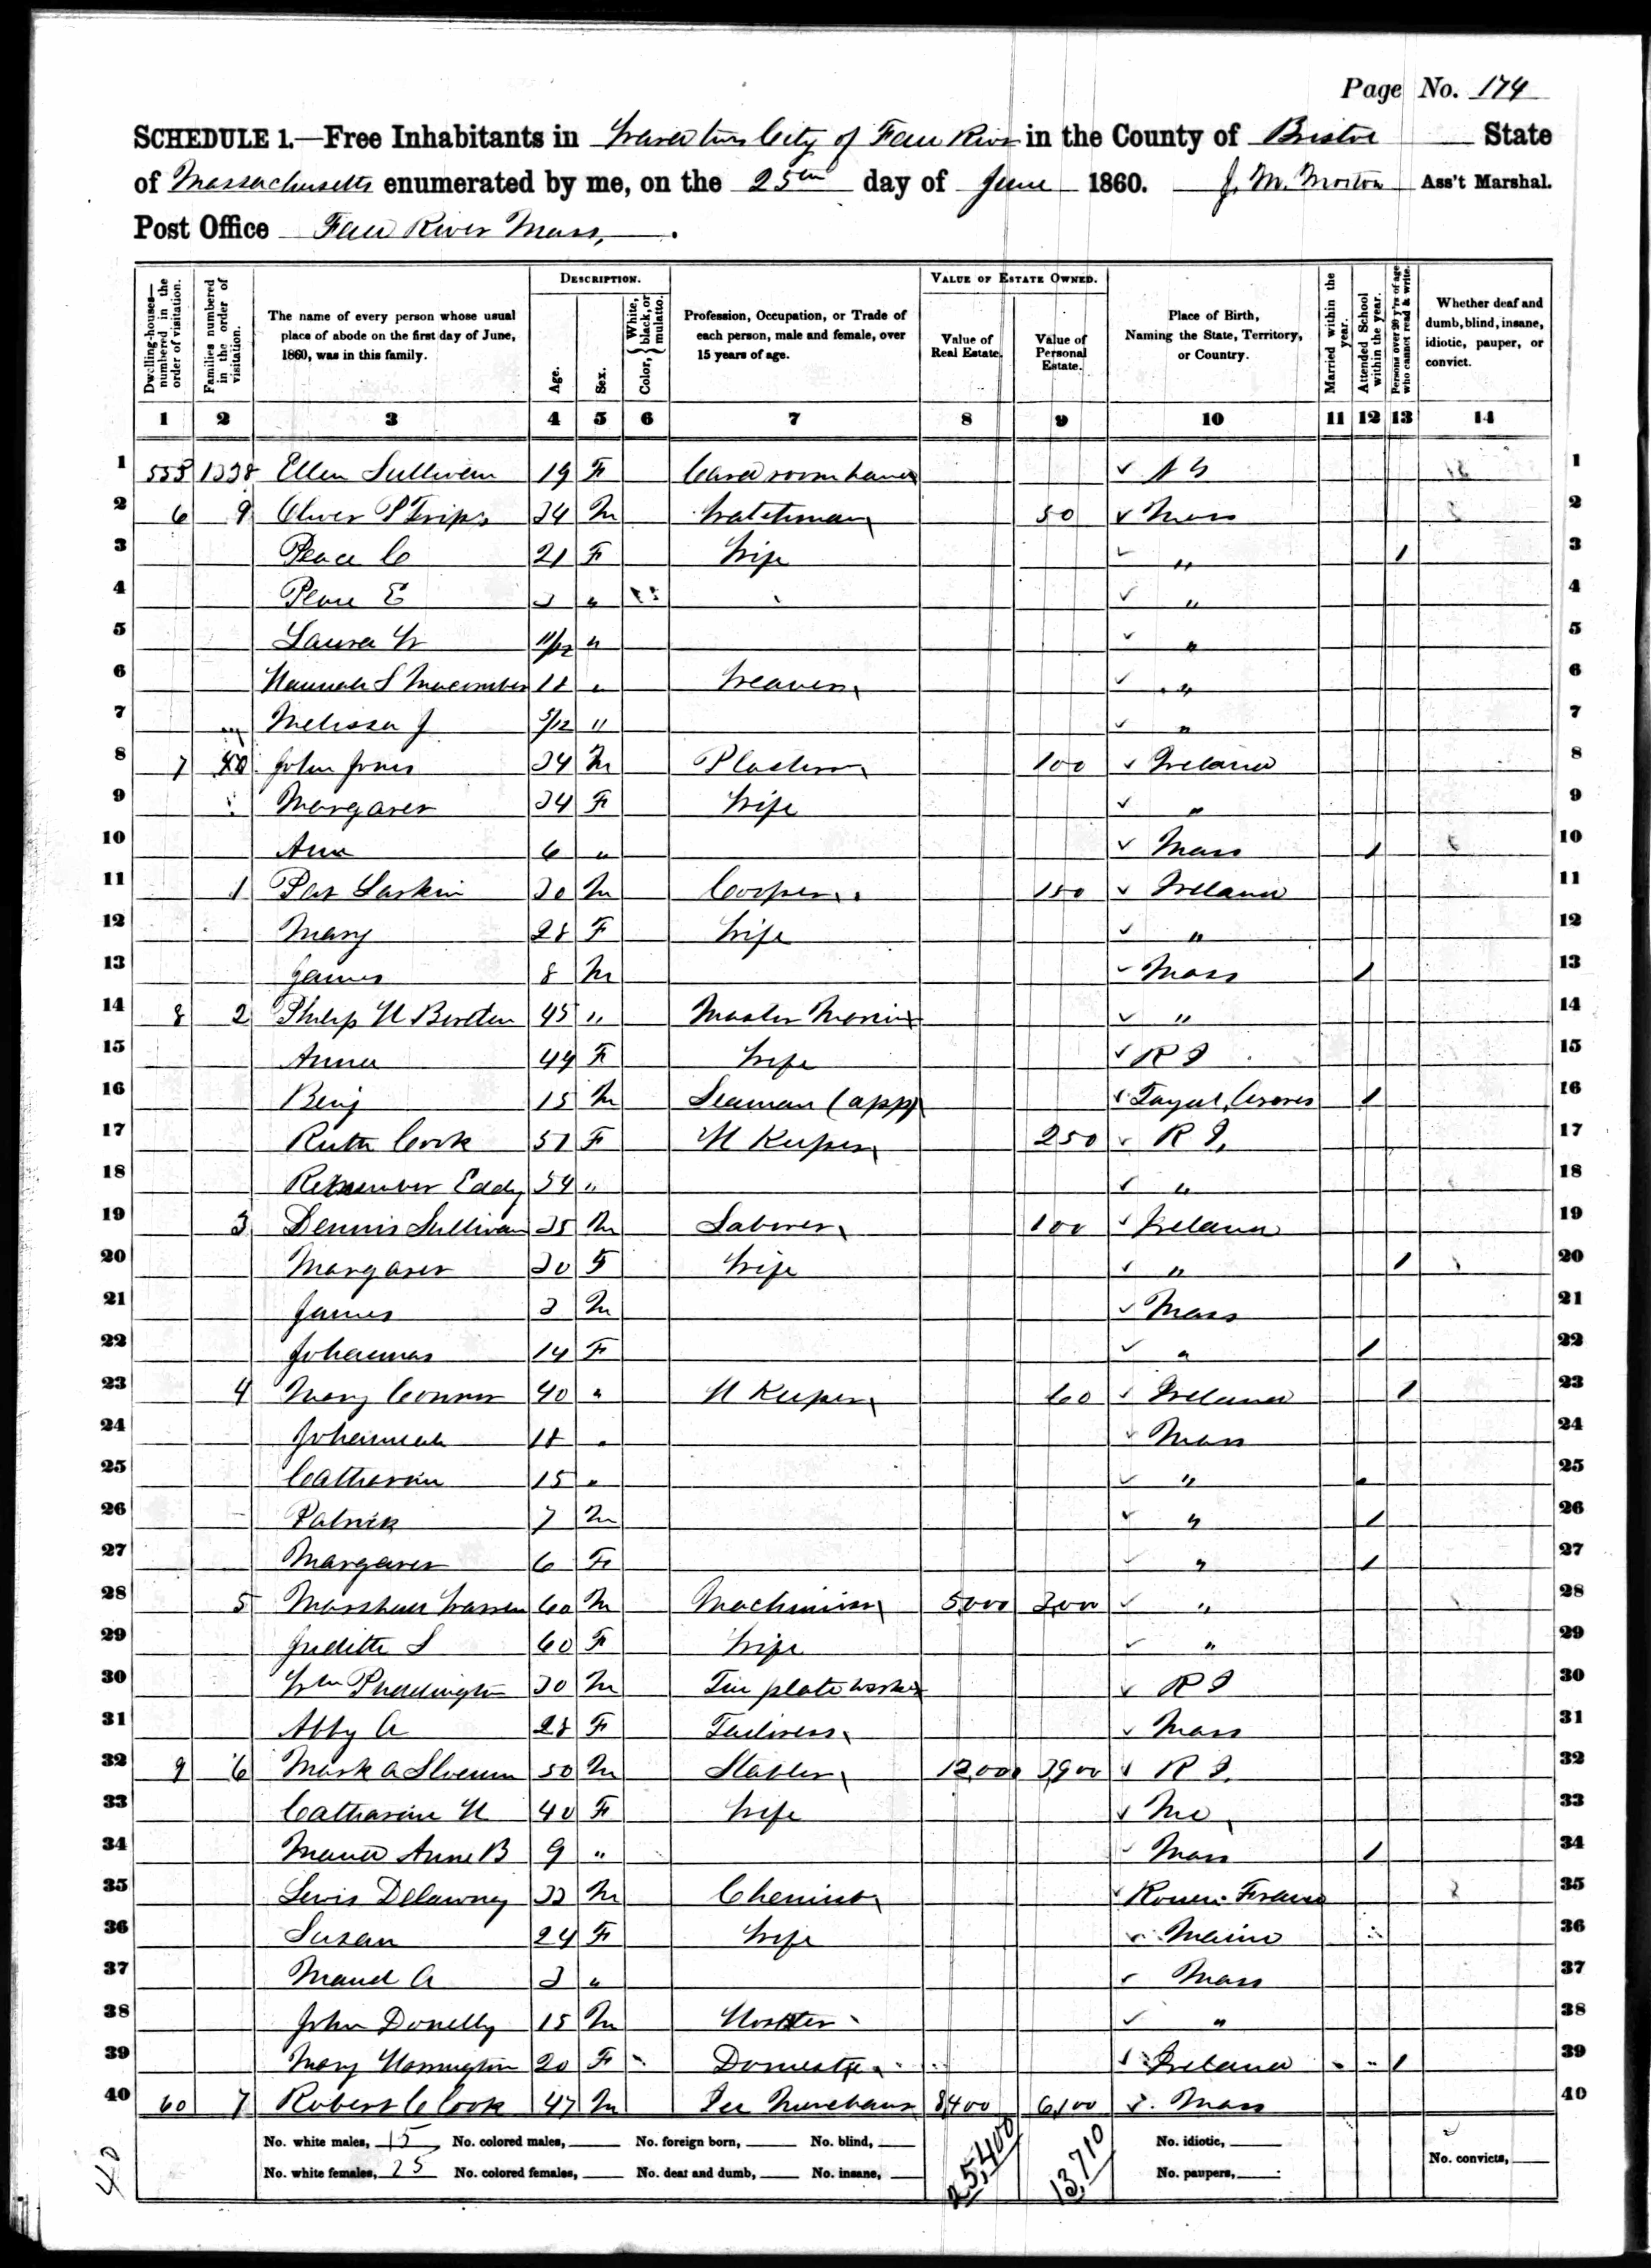 Page No. 174
SCHEDULE 1.—Free Inhabitants in Ward two City of Fall River in the County of Bristol State
of Massachusetts enumerated by me, on the 25th day of June 1860. J. M. Morton Ass't Marshal.
Post Office Fall River Mass.
DESCRIPTION. VALUE OF ESTATE OWNED.
Dwelling-houses—numbered in the order of visitation. Families numbered in the order of visitation. The name of every person whose usual place of abode on the first day of June, 1860, was in this family. Age. Sex. Color, White, black, or mulatto. Profession, Occupation, or Trade of each person, male and female, over 15 years of age. Value of Real Estate. Value of Personal Estate. Place of Birth, Naming the State, Territory, or Country. Married within the year. Attended School within the year. Persons over 20 y'rs of age who cannot read & write. Whether deaf and dumb, blind, insane, idiotic, pauper, or convict.
1 2 3 4 5 6 7 8 9 10 11 12 13 14
1 555 1338 Ellen Sullivan 19 F Card room hand 1
2 6 9 Oliver P Tripp 34 M Watchman 50 Mass 2
3 Peace C 21 F Wife " / 3
4 Peace E 3 " " 4
5 Laura W 11/12 " " 5
6 Hannah S Macomber 18 " Weaver " 6
7 Melissa J 5/12 " " 7
8 7 40 John Jones 34 M Plasterer 100 Ireland 8
9 Margaret 34 F Wife " 9
10 Ann 6 " Mass / 10
11 1 Pat Larkin 30 M Cooper 150 Ireland 11
12 Mary 28 F Wife " 12
13 James 8 M Mass / 13
14 8 2 Philip H Borden 45 " Master Mariner " 14
15 Anna 44 F Wife R I 15
16 Benj 15 M Seaman (app) Fayal, Azores / 16
17 Ruth Cook 57 F H Keeper 250 R I, 17
18 Remember Eddy 54 " " 18
19 3 Dennis Sullivan 35 M Laborer 100 Ireland 19
20 Margaret 30 F Wife " / 20
21 James 3 M Mass 21
22 Johannas 14 F " / 22
23 4 Mary Connor 40 " H Keeper 60 Ireland / 23
24 Johannah 18 " Mass 24
25 Catharine 15 " " 25
26 Patrick 7 M " / 26
27 Margaret 6 F " / 27
28 5 Marshall Warren 60 M Machinist 5000 3,000 " 28
29 Judith S 60 F Wife " 29
30 Wm 30 M Tin plate worker R I 30
31 Abby A 28 F Tailoress Mass 31
32 9 6 Mark A Slocum 50 M Stabler 12,000 3,900 R I. 32
33 Catharine H 40 F Wife Me 33
34 Anne B 9 " Mass / 34
35 Lewis Delawney 33 M Chemist Rouen France 35
36 Susan 24 F Wife Maine 36
37 Maud A 3 " Mass 37
38 John Donelly 15 M Hostler " 38
39 Mary Harrington 20 F Domestic Ireland / 39
40 60 7 Robert C Cook 47 M Ice Merchant 8,400 6,100 Mass 40
No. white males, 15 No. colored males, No. foreign born, No. blind, 25,400 13,710 No. idiotic,
No. white females, 25 No. colored females, No. deaf and dumb, No. insane, No. paupers, No. convicts,
40